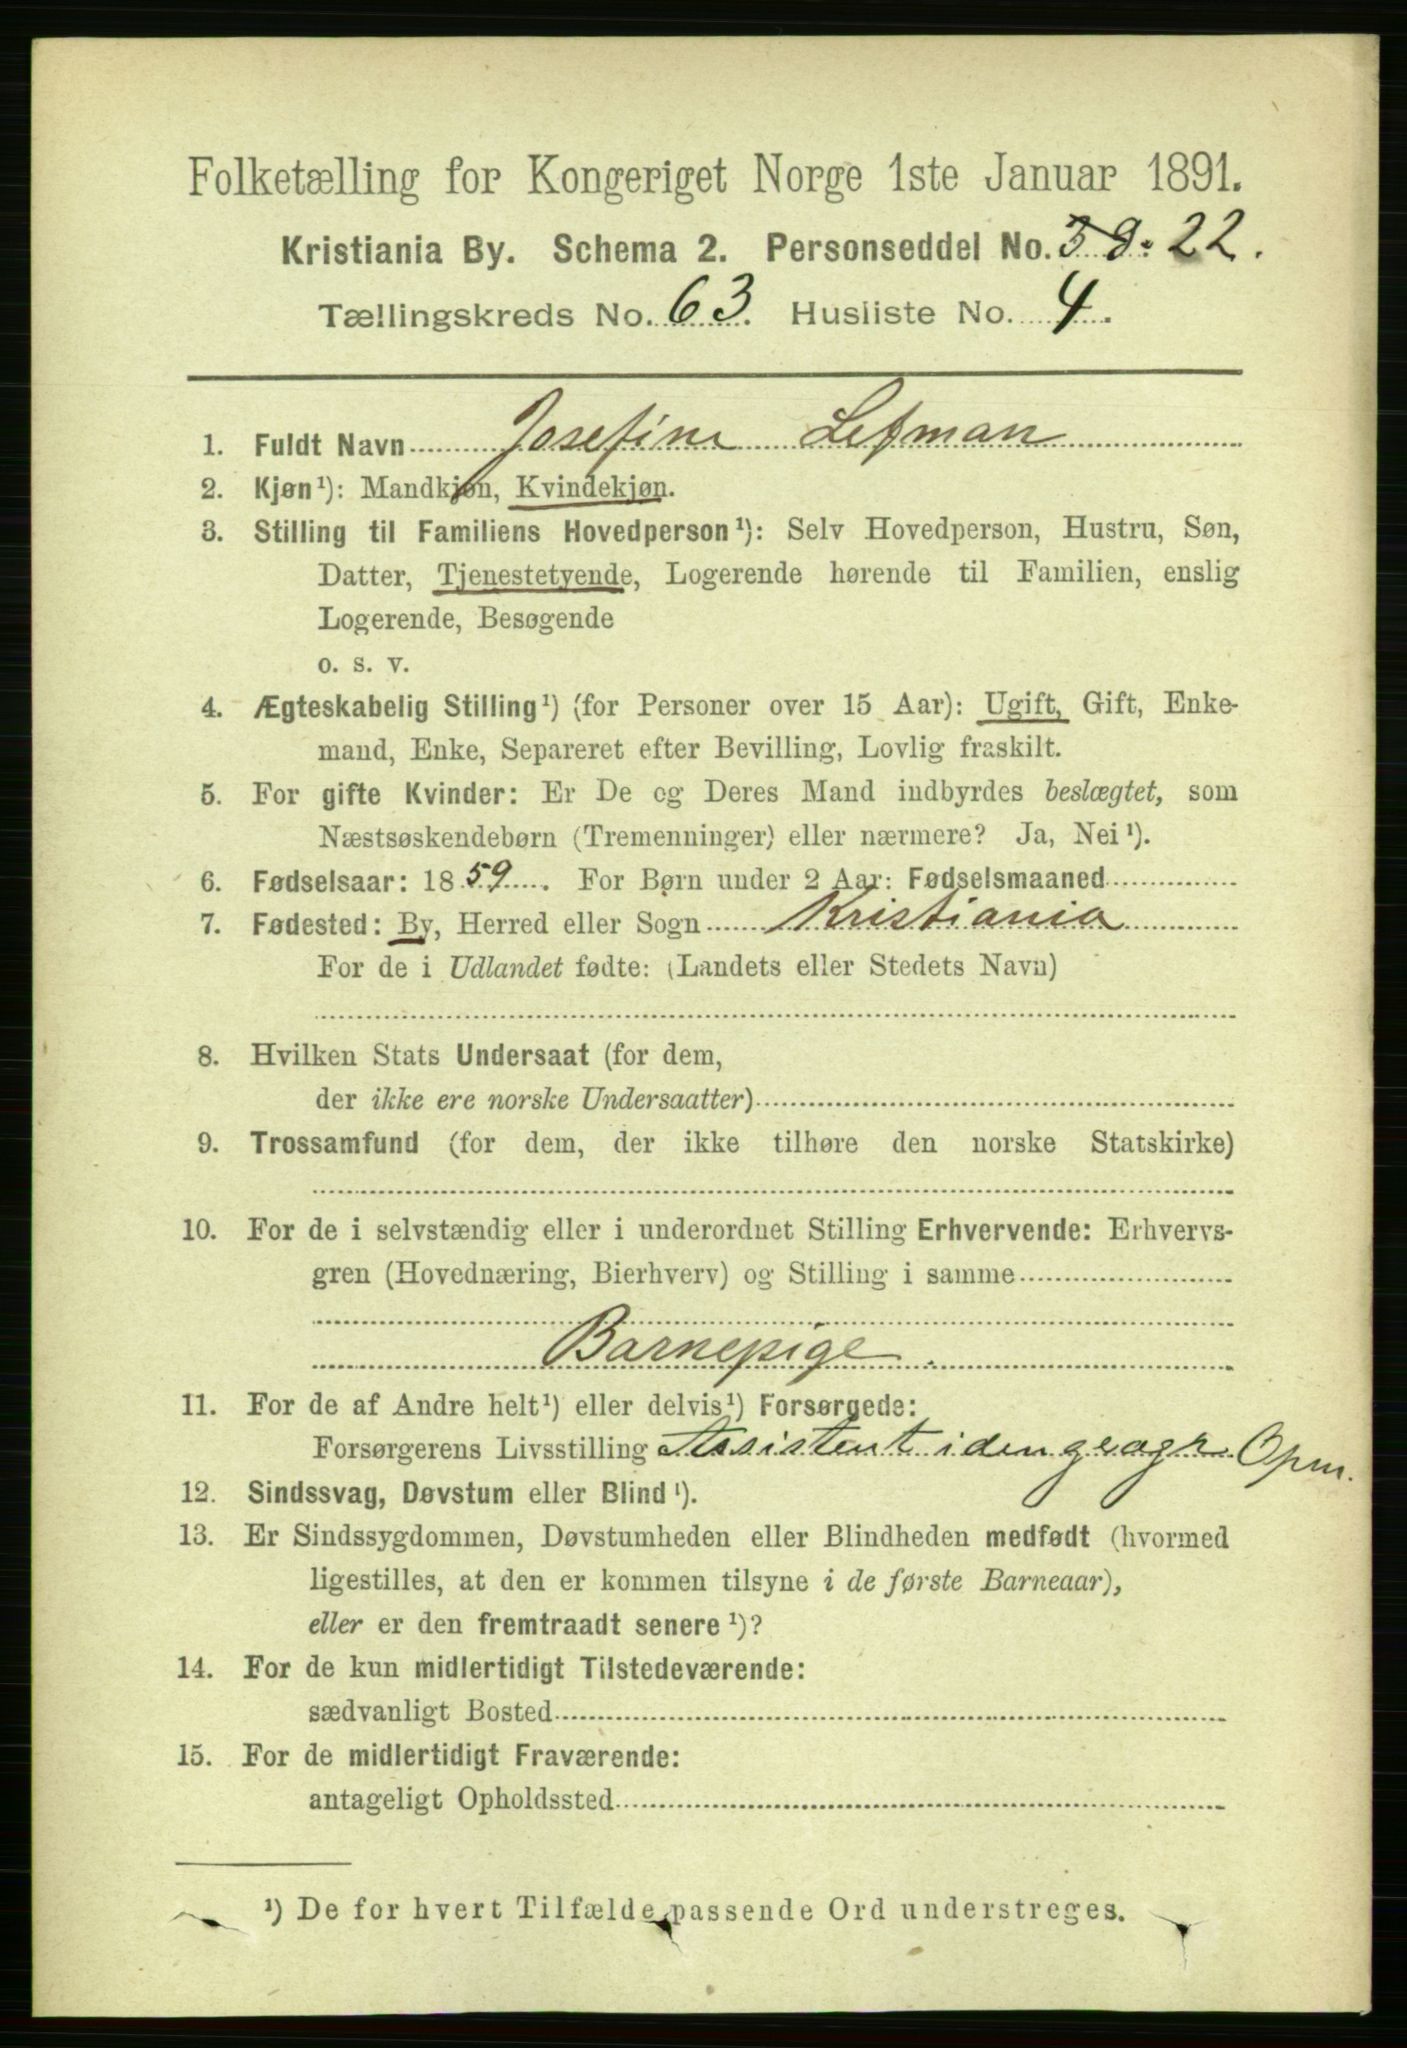 Folketælling for Kongeriget Norge 1ste Januar 1891.
Kristiania By. Schema 2. Personseddel No. 38. 22.
Tællingskreds No. 63. Husliste No. 4.
1. Fuldt Navn Josefine Lefman
2. Kjøn¹): Mandkjøn, Kvindekjøn.
3. Stilling til Familiens Hovedperson¹): Selv Hovedperson, Hustru, Søn,
Datter, Tjenestetyende, Logerende hørende til Familien, enslig
Logerende, Besøgende
o. s. v.
4. Ægteskabelig Stilling¹) (for Personer over 15 Aar): Ugift, Gift, Enke-
mand, Enke, Separeret efter Bevilling, Lovlig fraskilt.
5. For gifte Kvinder: Er De og Deres Mand indbyrdes beslægtet, som
Næstsøskendebørn (Tremenninger) eller nærmere? Ja, Nei¹).
6. Fødselsaar: 1859. For Børn under 2 Aar: Fødselsmaaned
7. Fødested: By, Herred eller Sogn Kristiania
For de i Udlandet fødte: (Landets eller Stedets Navn)
8. Hvilken Stats Undersaat (for dem,
der ikke ere norske Undersaatter)
9. Trossamfund (for dem, der ikke tilhøre den norske Statskirke)
10. For de i selvstændig eller i underordnet Stilling Erhvervende: Erhvervs-
gren (Hovednæring, Bierhverv) og Stilling i samme
Barnepige.
11. For de af Andre helt¹) eller delvis¹) Forsørgede:
Forsørgerens Livsstilling Assistent i den geogr. Opm.
12. Sindssvag, Døvstum eller Blind¹).
13. Er Sindssygdommen, Døvstumheden eller Blindheden medfødt (hvormed
ligestilles, at den er kommen tilsyne i de første Barneaar),
eller er den fremtraadt senere¹)?
14. For de kun midlertidigt Tilstedeværende:
sædvanligt Bosted
15. For de midlertidigt Fraværende:
antageligt Opholdssted
¹) De for hvert Tilfælde passende Ord understreges.